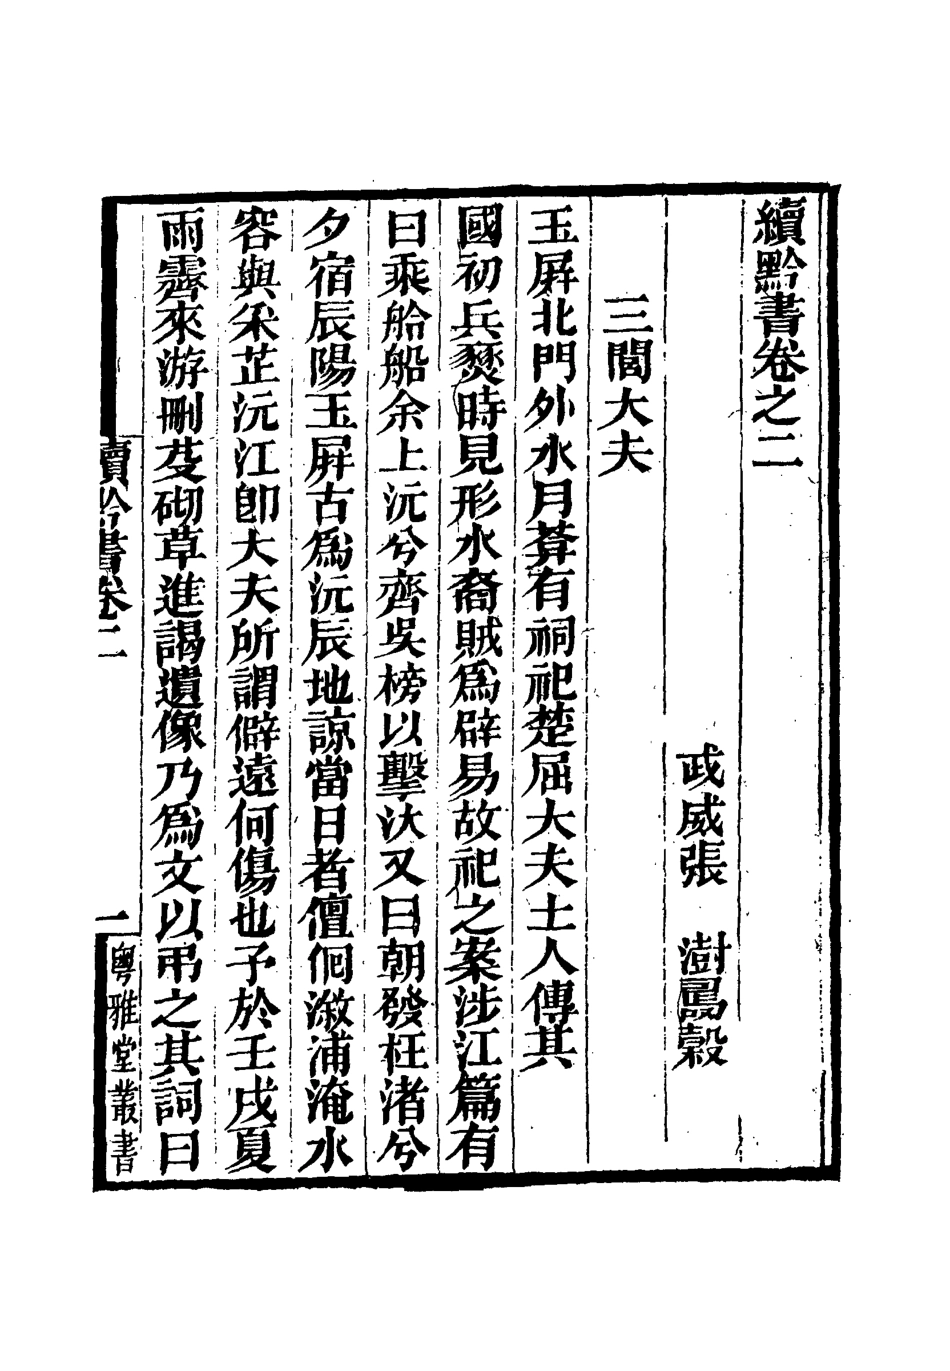 續黔書卷之二
武威張　澍鳴穀
三閭大夫
玉屛北門外水月葊有祠祀楚屈大夫土人傳其
國初兵燹時見形水裔賊爲辟易故祀之案涉江篇有
曰乘舲船余上沅兮齊吳榜以擊汰又曰朝發枉渚兮
夕宿辰陽玉屛古爲沅辰地諒當日者儃佪漵浦淹水
容與采芷沅江卽大夫所謂僻遠何傷也予於壬戌夏
雨霽來游刪芟砌草進謁遺像乃爲文以弔之其詞曰
續黔書卷二
一
粵雅堂叢書